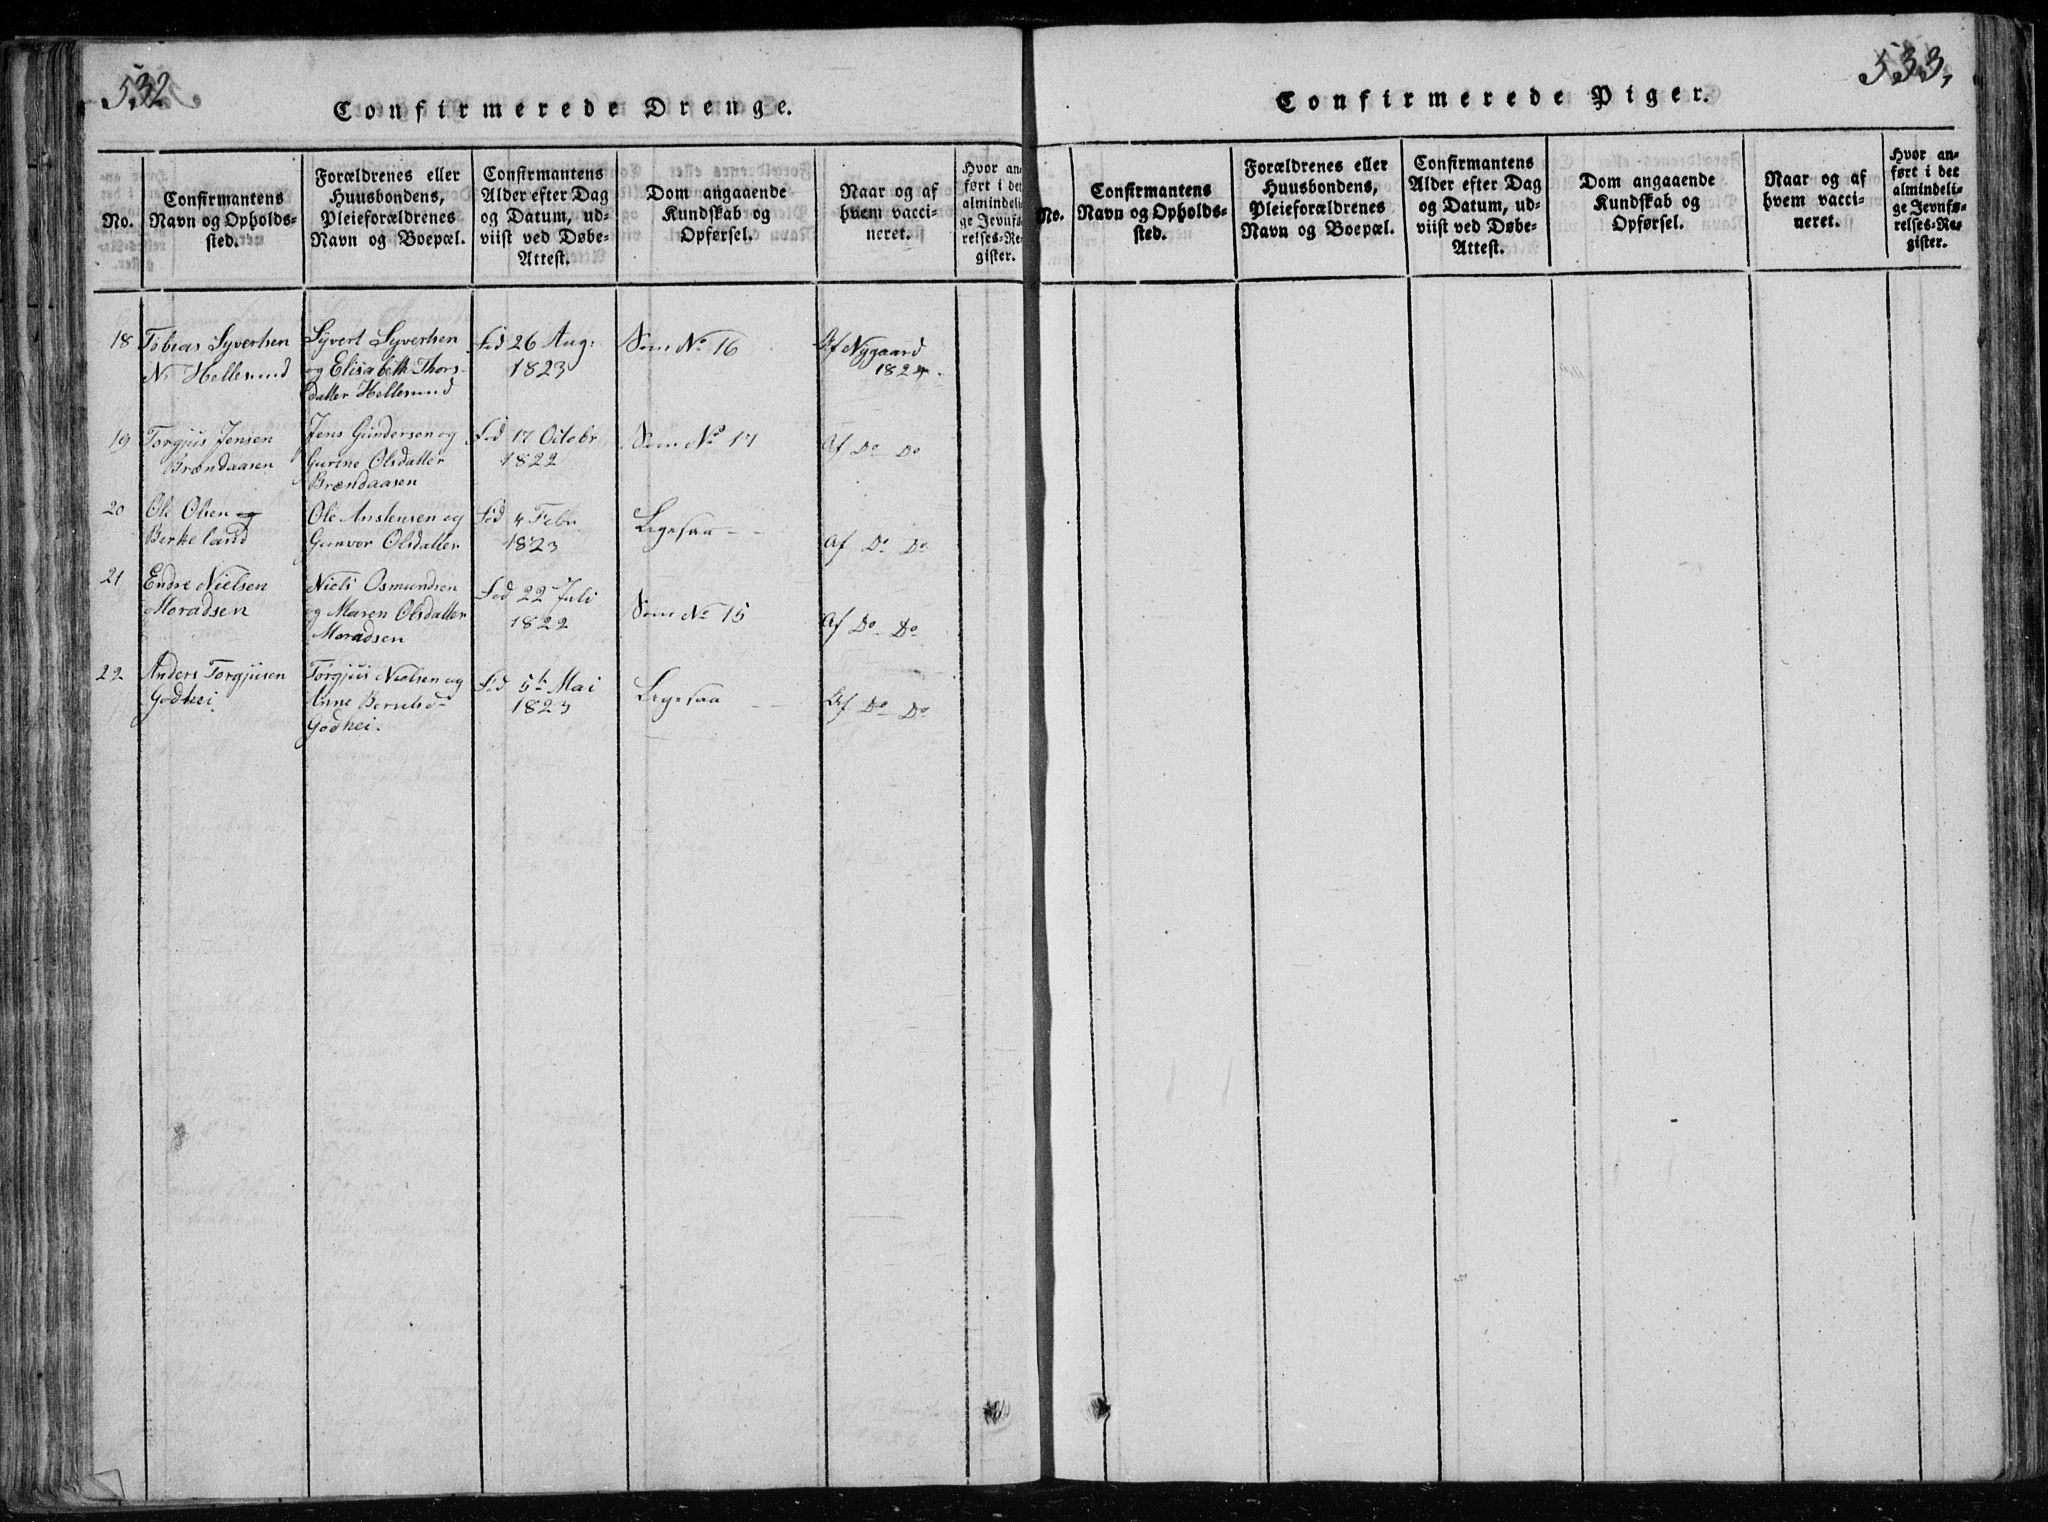 532
Confirmerede Drenge.
No.
Confirmantens
Navn og Opholds-
sted.
Forældrenes eller
Huusbondens,
Pleieforældrenes
Navn og Boepæl.
Confirmantens
Alder efter Dag
og Datum, ud-
viist ved Døbe-
Attest.
Dom angaaende
Kundskab og
Opførsel.
Naar og af
hvem vacci-
neret.
Hvor an-
ført i det
almindeli-
ge Jevnfø-
relses-Re-
gister.
18
Tobias Syvertsen
N. Hellesund
Syvert Syvertsen
og Elisabeth Thors-
datter Hellesund
Fød 26 Aug:
1823
Som No 16
Af Nygaard
1824.
19
Torgjus Jensen
Brændaasen
Jens Gundersen og
Gurine Olsdatter
Brændaasen
Fød 17 Octobr
1822
Som No 17
Af Do Do
20
Ole Olsen
Birkeland
Ole Anstensen og
Gunvor Olsdatter
Fød 4 Febr.
1823
Ligesaa - -
Af Do Do
21
Endre Nielsen
Moradsen
Niels Osmundsen
og Maren Olsdatter
Moradsen
Fød 22 Juli
1822
Som No 15
Af Do Do
22
Anders Torgjusen
Godhei
Torgjus Nielsen og
Anne
Godhei.
Fød 5te Mai
1823
Ligesaa - -
Af Do Do
533,
Confirmerede Piger.
No.
Confirmantens
Navn og Opholds-
sted.
Forældrenes eller
Huusbondens,
Pleieforældrenes
Navn og Boepæl.
Confirmantens
Alder efter Dag
og Datum, ud-
viist ved Døbe-
Attest.
Dom angaaende
Kundskab og
Opførsel.
Naar og af
hvem vacci-
neret.
Hvor an-
ført i det
almindeli-
ge Jevnfø-
relses-Re-
gister.